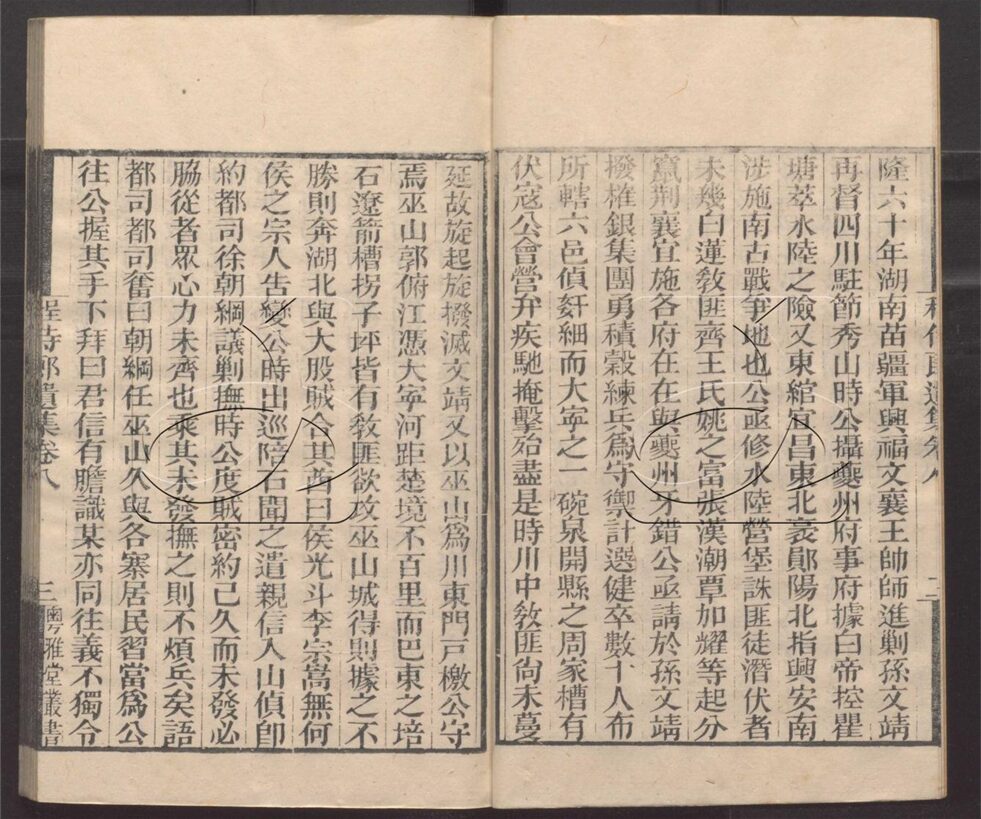 程侍郎遺集卷八
二
隆六十年湖南苗疆軍興福文襄王帥師進剿孫文靖
再督四川駐節秀山時公攝夔州府事府據白帝控瞿
塘萃水陸之險又東綰宜昌東北袤鄖陽北指興安南
涉施南古戰爭地也公亟修水陸營堡誅匪徒潛伏者
未幾白蓮教匪齊王氏姚之富張漢潮覃加耀等起分
竄荊襄宜施各府在在與夔州牙錯公亟請於孫文靖
撥榷銀集團勇積穀練兵為守禦計選健卒數十人布
所轄六邑偵奸細而大寧之一碗泉開縣之周家槽有
伏寇公會營弁疾馳掩擊殆盡是時川中教匪尚未蔓
延故旋起旋撥滅文靖又以巫山為川東門戶檄公守
焉巫山郭俯江憑大寧河距楚境不百里而巴東之培
石遼箭槽拐子坪皆有教匪欲攻巫山城得則據之不
勝則奔湖北與大股賊合其酋曰侯光斗李宗嵩無何
侯之宗人告變公時出巡陪石聞之遣親信入山偵即
約都司徐朝綱議剿撫時公度賊密約已久而未發必
脇從者眾心力未齊也乘其未發撫之則不煩兵矣語
都司都司奮曰朝綱任巫山久與各寨居民習當為公
往公握其手下拜曰君信有膽識某亦同往義不獨令
程侍郎遺集卷八
三
粵雅堂叢書